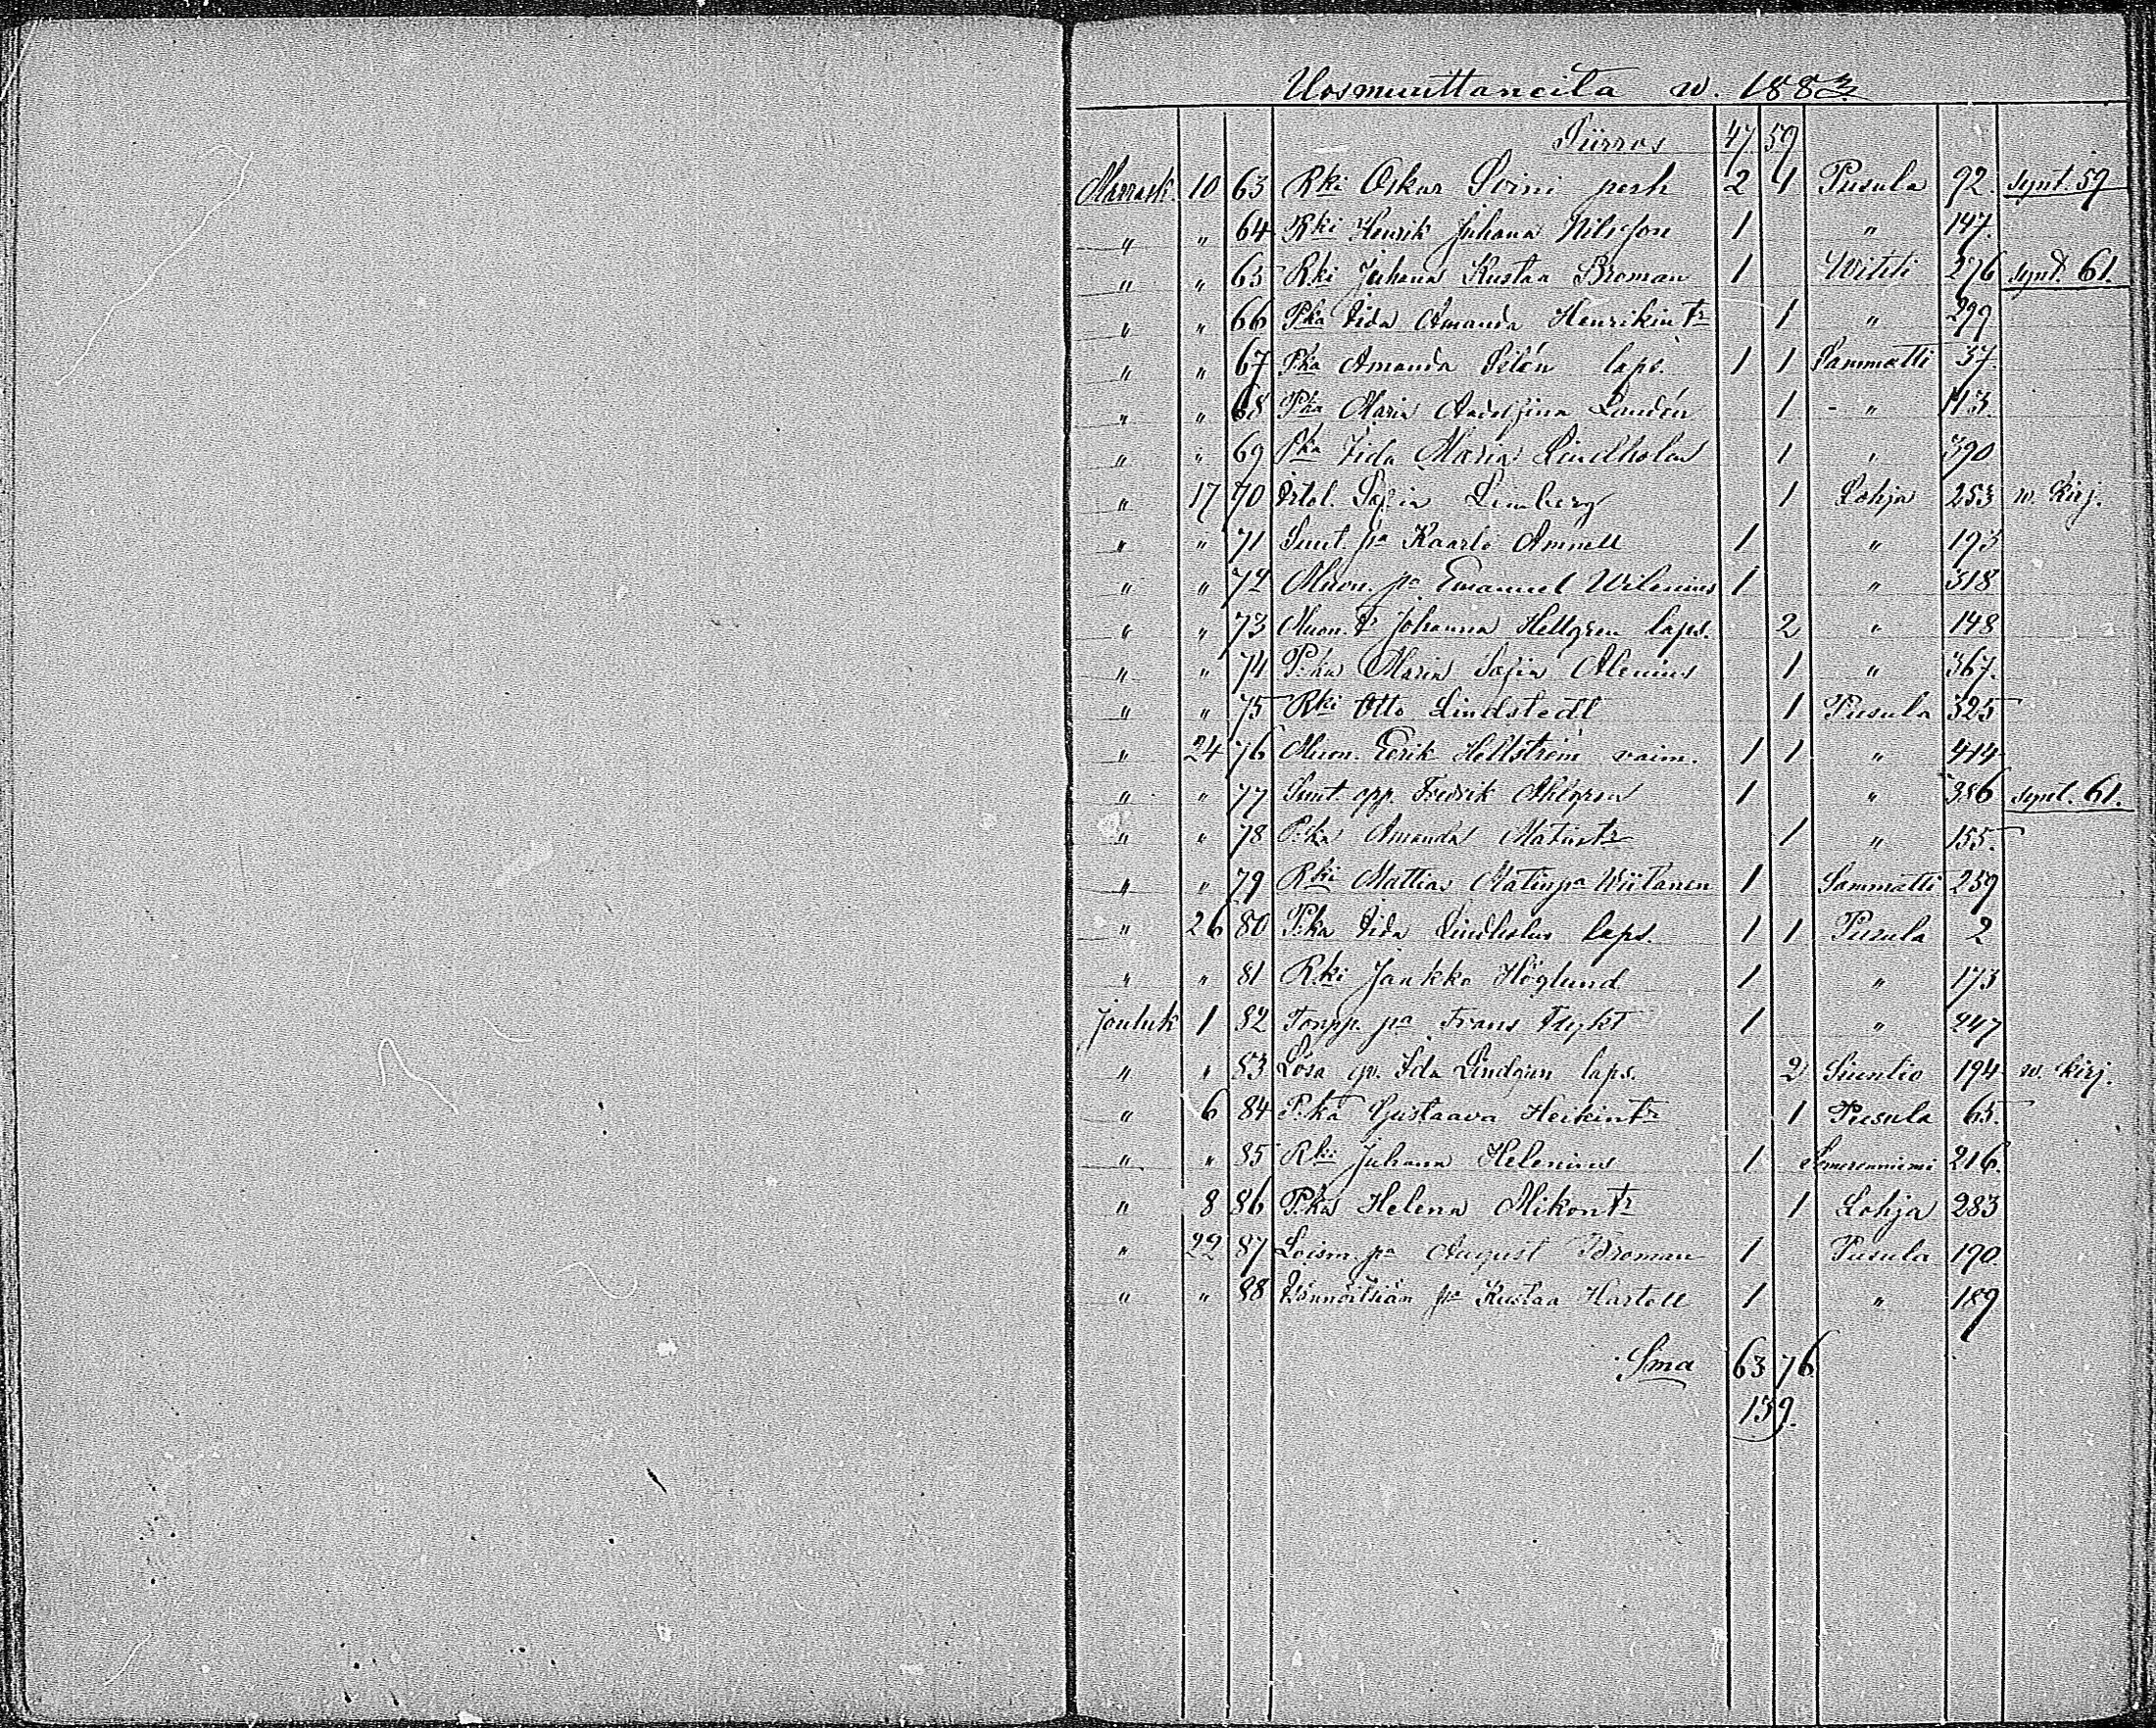 Uosmuuttaneita w. 1883.
Siirros 47 59
Marrask. 10 63 Rki Oskar Soini perh 2 4 Pusula 92. synt. 59
" " 64 Rki Henrik Juhana Nilsson 1 " 147.
" " 65 Rki Juhana Kustaa Broman 1 Wihti 276 synt. 61.
" " 66 Pka Iida Amanda Henrikintr 1 " 299
" " 67 Pka Amanda Silén laps. 1 1 Sammatti 37.
" " 68 Pka Maria Adolfina Landén 1 " 113.
" " 69 Pka Iida Maria Lindholm 1 " 390
" 17 70 Itol. Sofia Limberg 1 Lohja 253 w. Kirj.
" " 71 Suut. pa Kaarlo Amnell 1 " 193
" " 72 Muon. pa Emanuel Wilenius 1 " 318
" " 73 Muon. tr Johanna Hellgren laps. 2 " 148
" " 74 P.ka Maria Sofia Alenius 1 " 367.
" " 75 Rki Otto Lindstedt 1 Pusula 325
" 24 76 Muon. Eerik Hellström vaim. 1 1 " 414
" " 77 Suut. opp. Fredrik Ahlgren 1 " 386 synt. 61.
" " 78 P.ka Amanda Matintr 1 " 155.
" " 79 Rki Mattias Matinpa Wiitanen 1 Sammatti 259
" 26 80 P.ka Iida Lindholm laps. 1 1 Pusula 2
" " 81 Rki Jankko Höglund 1 " 173
Jouluk 1 82 Torpp. pa Frans Flykt 1 " 247
" " 83 Lösa qv. Ida Lindgren laps. 2 Siuntio 194 w. kirj.
" 6 84 P.ka Gustaava Heikintr 1 Pusula 65.
" " 85 Rki Juhana Helenius 1 Somerenniemi 216.
" 8 86 P.ka Helena Mikontr 1 Lohja 283
" 22 87 Loism. pa August Broman 1 Pusula 190.
" " 88 pa Kustaa Hartell 1 " 189
Sma 63 76
139.